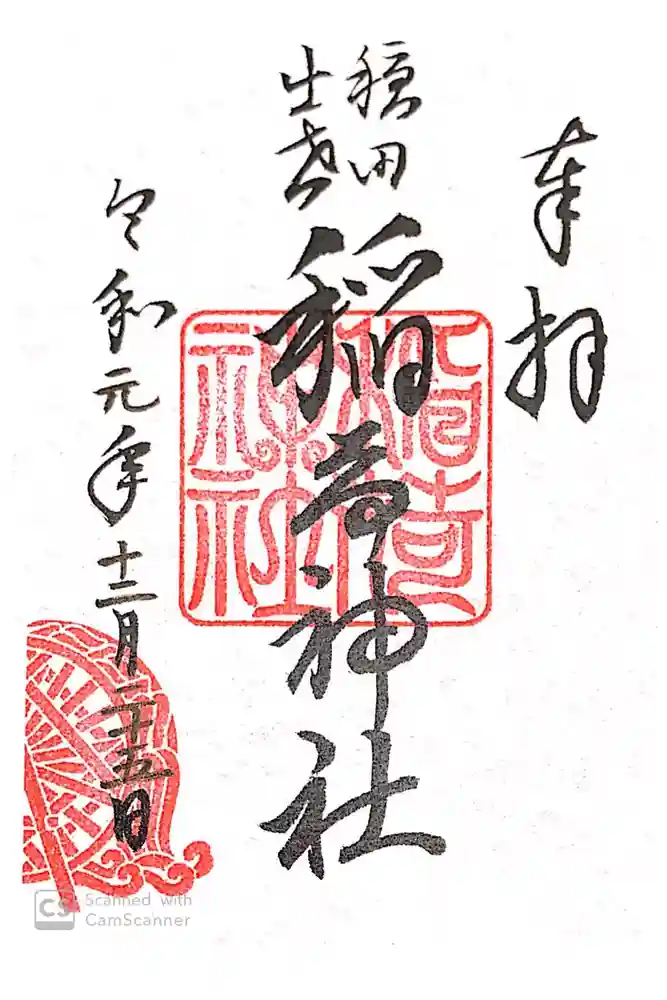 奉拝
穏田
出世
稲荷神社
稲荷
神社
令和元年十二月二十五日
CS Scanned with
CamScanner